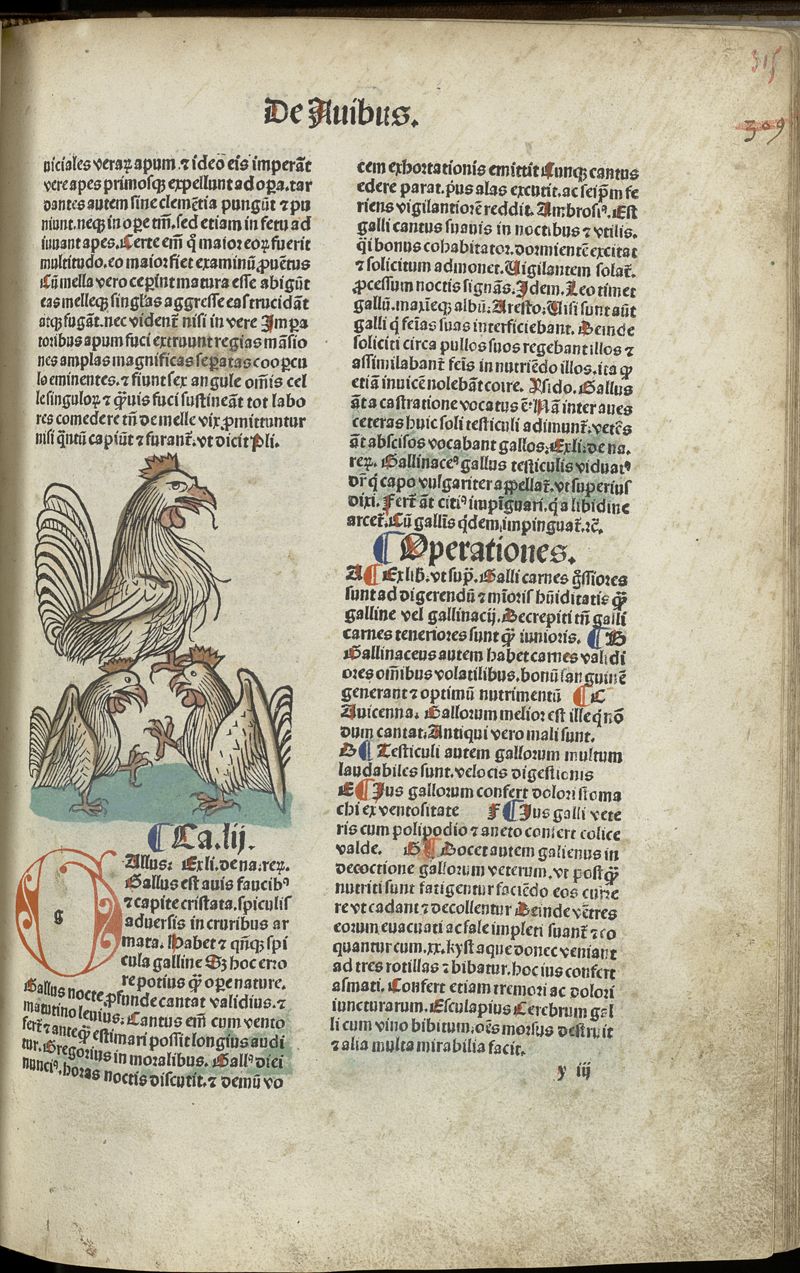 315
309
De Auibus.
uiciales veraꝝ apum. ⁊ ideo eis imperāt
vere apes primosqꝫ expellunt ad oꝑa. tar
dantes autem sine clemētia pungūt ⁊ pu
niunt. neqꝫ in oꝑe tm̄. sed etiam in fetu ad
iuuant apes. Certe em̄ q̄ maior eoꝝ fuerit
multitudo. eo maior fiet examinū ꝓuētus
Cū mella vero ceꝑint matura esse abigūt
eas melleqꝫ singĺas aggresse eas trucidāt
atqꝫ fugāt. nec videnť nisi in vere Imꝑa
toribus apum fuci extruunt regias māsio
nes amplas magnificas seꝑatas cooꝑcu
lo eminentes. ⁊ fiunt sex angule om̄is cel
le singuloꝝ ⁊ q̄uis fuci sustineāt tot labo
res comedere tn̄ de melle vix ꝑmittuntur
nisi q̄ntū capiūt ⁊ furanť. vt dicit Pli.
Ca. lij.
g
Allus. Ex li. de na. reꝝ.
Gallus est auis faucibꝰ
⁊ capite cristata. spiculis
aduersis in cruribus ar
mata. Habet ⁊ qn̄qꝫ spi
cula galline Sꝫ hoc erro
re potius q̄ꝫ oꝑe nature.
Gallus nocte ꝓfunde cantat validius. ⁊
matutino leuius. Cantus em̄ cum vento
ferť ⁊ anteq̄ꝫ estimari possit longius audi
tur. Gregorius in moralibus. Gallꝰ diei
nunciꝰ. horas noctis discutit. ⁊ demū vo
cem exhortationis emittit Cunqꝫ cantus
edere parat. pꝰus alas excutit. ac seip̄m fe
riens vigilantiorē reddit. Ambrosiꝰ. Est
galli cantus suauis in noctibus ⁊ vtilis.
q̄i bonus cohabitator. dormientē excitat
⁊ solicitum admonet. Vigilantem solať.
ꝓcessum noctis signās. Idem. Leo timet
gallū. maxīeqꝫ albū. Aresto. Visi sunt aūt
galli q̄ feīas suas interficiebant. Deinde
soliciti circa pullos suos regebant illos ⁊
assimilabanť feīs in nutriēdo illos. ita ꝙ
etiā inuicē nolebāt coire. Ysido. Gallus
āt a castratione vocatus ē. Nā inter aues
ceteras huic soli testiculi adimunť. vetēs
āt abscisos vocabant gallos. Ex li. de na.
reꝝ. Gallinaceꝰ gallus testiculis viduatꝰ
dr̄ q̄ capo vulgariter appellať. vt superius
dixi. Ferť āt citiꝰ impīguari. q̄ a libidine
arceť. Cū gallīs q̄dem impinguať. ꝛc̄.
Operationes.
A Ex lib̄. vt suꝑ. Galli carnes g̃ssiores
sunt ad digerendū ⁊ mīoris hūiditatis q̄ꝫ
galline vel gallinacij. Decrepiti tn̄ galli
carnes teneriores sunt q̄ꝫ iuniores. B
Gallinaceus autem habet carnes validi
ores om̄ibus volatilibus. bonū sanguinē
generant ⁊ optimū nutrimentū C
Auicenna. Gallorum melior est ille q̄ nō
dum cantat. Antiqui vero mali sunt.
D Testiculi autem gallorum multum
laudabiles sunt. velocis digestionis
E Jus gallorum confert dolori stoma
chi ex ventositate F Jus galli vete
ris cum polipodio ⁊ aneto confert colice
valde. G Docet autem galienus in
decoctione gallorum veterum. vt postq̄ꝫ
nutriti sunt fatigentur faciēdo eos curre
re vt cadant ⁊ decollentur Deinde vētres
eorum euacuati ac sale impleti suanť ⁊ co
quantur cum. xx. kyst aque donec veniant
ad tres rotillas ⁊ bibatur. hoc ius confert
asmati. Confert etiam tremori ac dolori
iuncturarum. Esculapius Cerebrum gal
li cum vino bibitum. oēs morsus destruit
⁊ alia multa mirabilia facit.
y iij